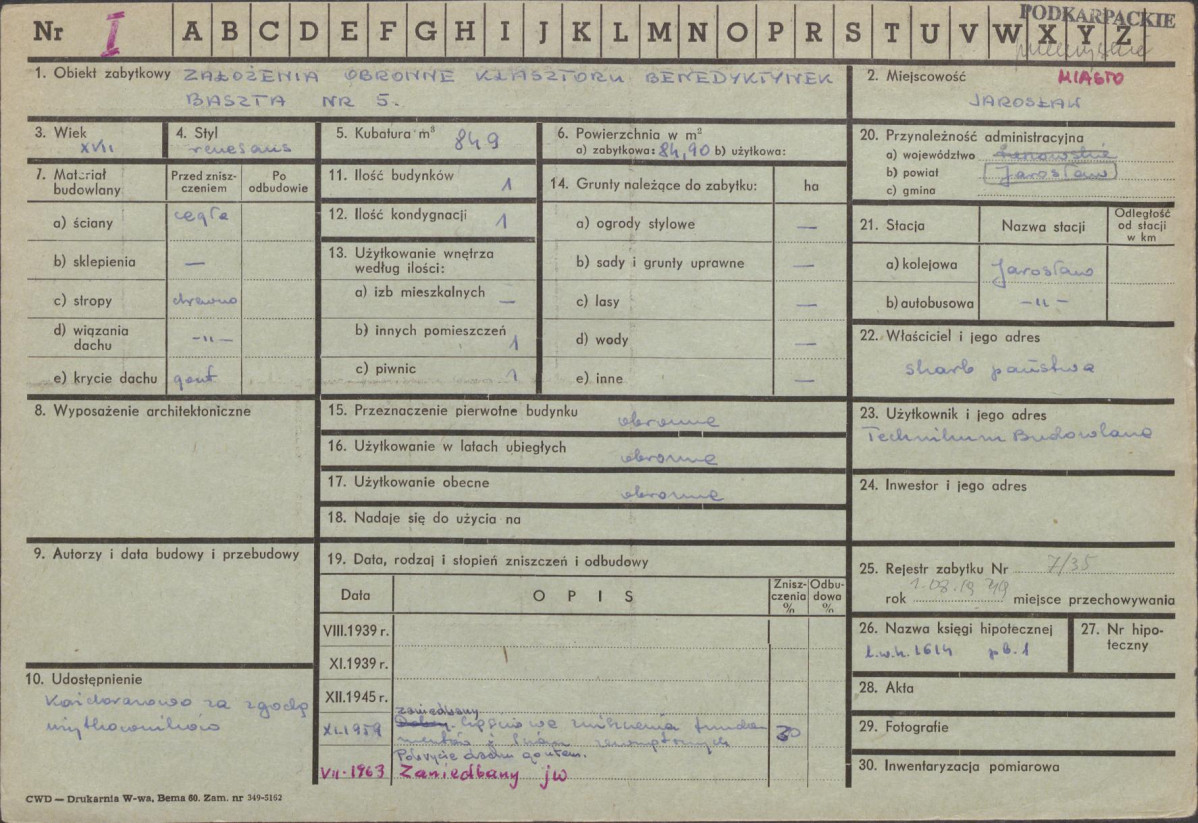 Nr I A B C D E F G H I J K L M N O P R S T U V W X Y Z
PODKARPACKIE
1. Obiekt zabytkowy ZAŁOŻENIA OBRONNE KLASZTORU BENEDYKTYNEK
BASZTA NR 5.
2. Miejscowość MIASTO
JAROSŁAW
3. Wiek
XVII
4. Styl
renesans
5. Kubatura m³ 849
6. Powierzchnia w m²
a) zabytkowa: 84,90 b) użytkowa:
7. Materiał budowlany
Przed zniszczeniem
Po odbudowie
a) ściany cegła
b) sklepienia —
c) stropy drewno
d) wiązania dachu -"-
e) krycie dachu gont
8. Wyposażenie architektoniczne
9. Autorzy i data budowy i przebudowy
10. Udostępnienie
za zgodą
użytkowników
11. Ilość budynków 1
12. Ilość kondygnacji 1
13. Użytkowanie wnętrza według ilości:
a) izb mieszkalnych —
b) innych pomieszczeń 1
c) piwnic 1
14. Grunty należące do zabytku: ha
a) ogrody stylowe —
b) sady i grunty uprawne —
c) lasy —
d) wody —
e) inne —
15. Przeznaczenie pierwotne budynku obronne
16. Użytkowanie w latach ubiegłych obronne
17. Użytkowanie obecne obronne
18. Nadaje się do użycia na
19. Data, rodzaj i stopień zniszczeń i odbudowy
Data
O P I S
Zniszczenia %
Odbudowa %
VIII.1939 r.
XI.1939 r.
XII.1945 r.
zaniedbany
XI.1959 30
mentów i
Pokrycie dachu gontem.
VII-1963 Zaniedbany jw
20. Przynależność administracyjna
a) województwo
b) powiat Jarosław
c) gmina
21. Stacja
Nazwa stacji
Odległość od stacji w km
a) kolejowa Jarosław
b) autobusowa -"-
22. Właściciel i jego adres
skarb państwa
23. Użytkownik i jego adres
Technikum Budowlane
24. Inwestor i jego adres
25. Rejestr zabytku Nr 7/35
rok 1.08.1949 miejsce przechowywania
26. Nazwa księgi hipotecznej
l.w.h. 1614 pb. 1
27. Nr hipoteczny
28. Akta
29. Fotografie
30. Inwentaryzacja pomiarowa
CWD — Drukarnia W-wa, Bema 60. Zam. nr 349-5162